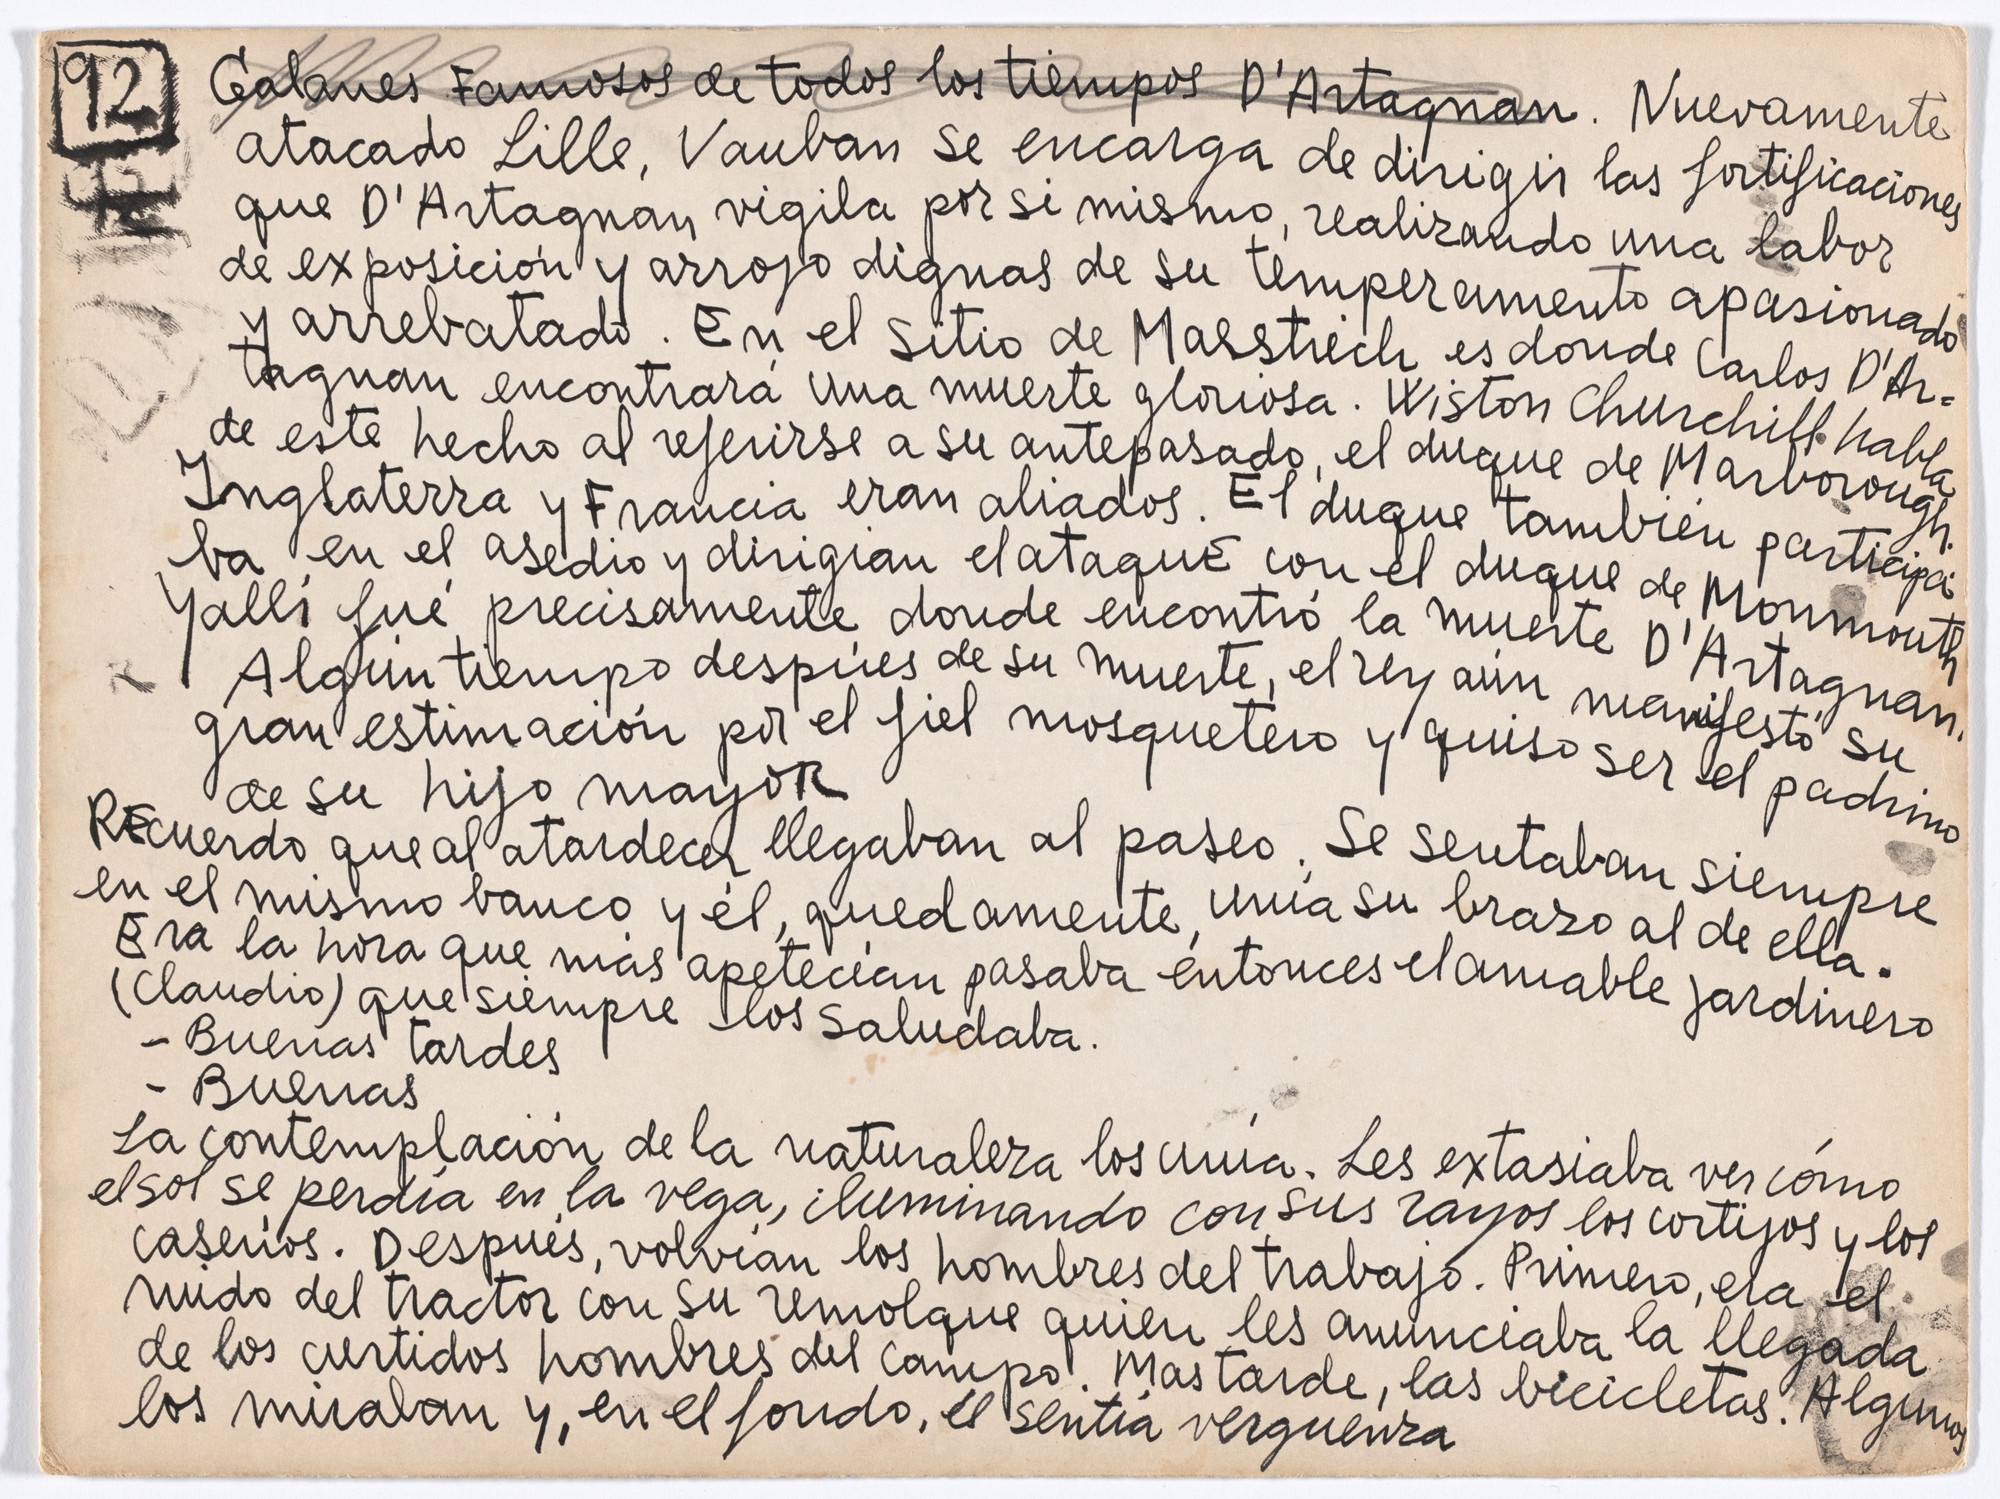 92
Galanes Famosos de todos los tiempos D'Artagnan. Nuevamente
atacado Lille, Vauban se encarga de dirigir las fortificaciones
que D'Artagnan vigila por si mismo, realizando una labor
de exposición y arrojo dignas de su temperamento apasionado
y arrebatado. En el sitio de Masstriech es donde Carlos D'Ar=
tagnan encontrará una muerte gloriosa. Wiston Churchill habla
de este hecho al referirse a su antepasado, el duque de Marborough.
Inglaterra y Francia eran aliados. El duque también participa
ba en el asedio y dirigian el ataque con el duque de Monmouth
Y allí fué precisamente donde encontró la muerte D'Artagnan.
Algún tiempo despúes de su muerte, el rey aún manifestó su
gran estimación por el fiel mosquetero y quiso ser el padrino
de su hijo mayor
Recuerdo que al atardecer llegaban al paseo. Se sentaban siempre
en el mismo banco y él, quedamente, unía su brazo al de ella.
Era la hora que más apetecían pasaba entonces el amable jardinero
(Claudio) que siempre los saludaba.
- Buenas tardes
- Buenas
La contemplación de la naturaleza los unía. Les extasiaba ver cómo
el sol se perdía en la vega, iluminando con sus rayos los cortijos y los
caseríos. Después, volvían los hombres del trabajo. Primero, era el
ruido del tractor con su remolque quien les anunciaba la llegada
de los curtidos hombres del campo. Mas tarde, las bicicletas. Algunos
los miraban y, en el fondo, él sentía verguenza